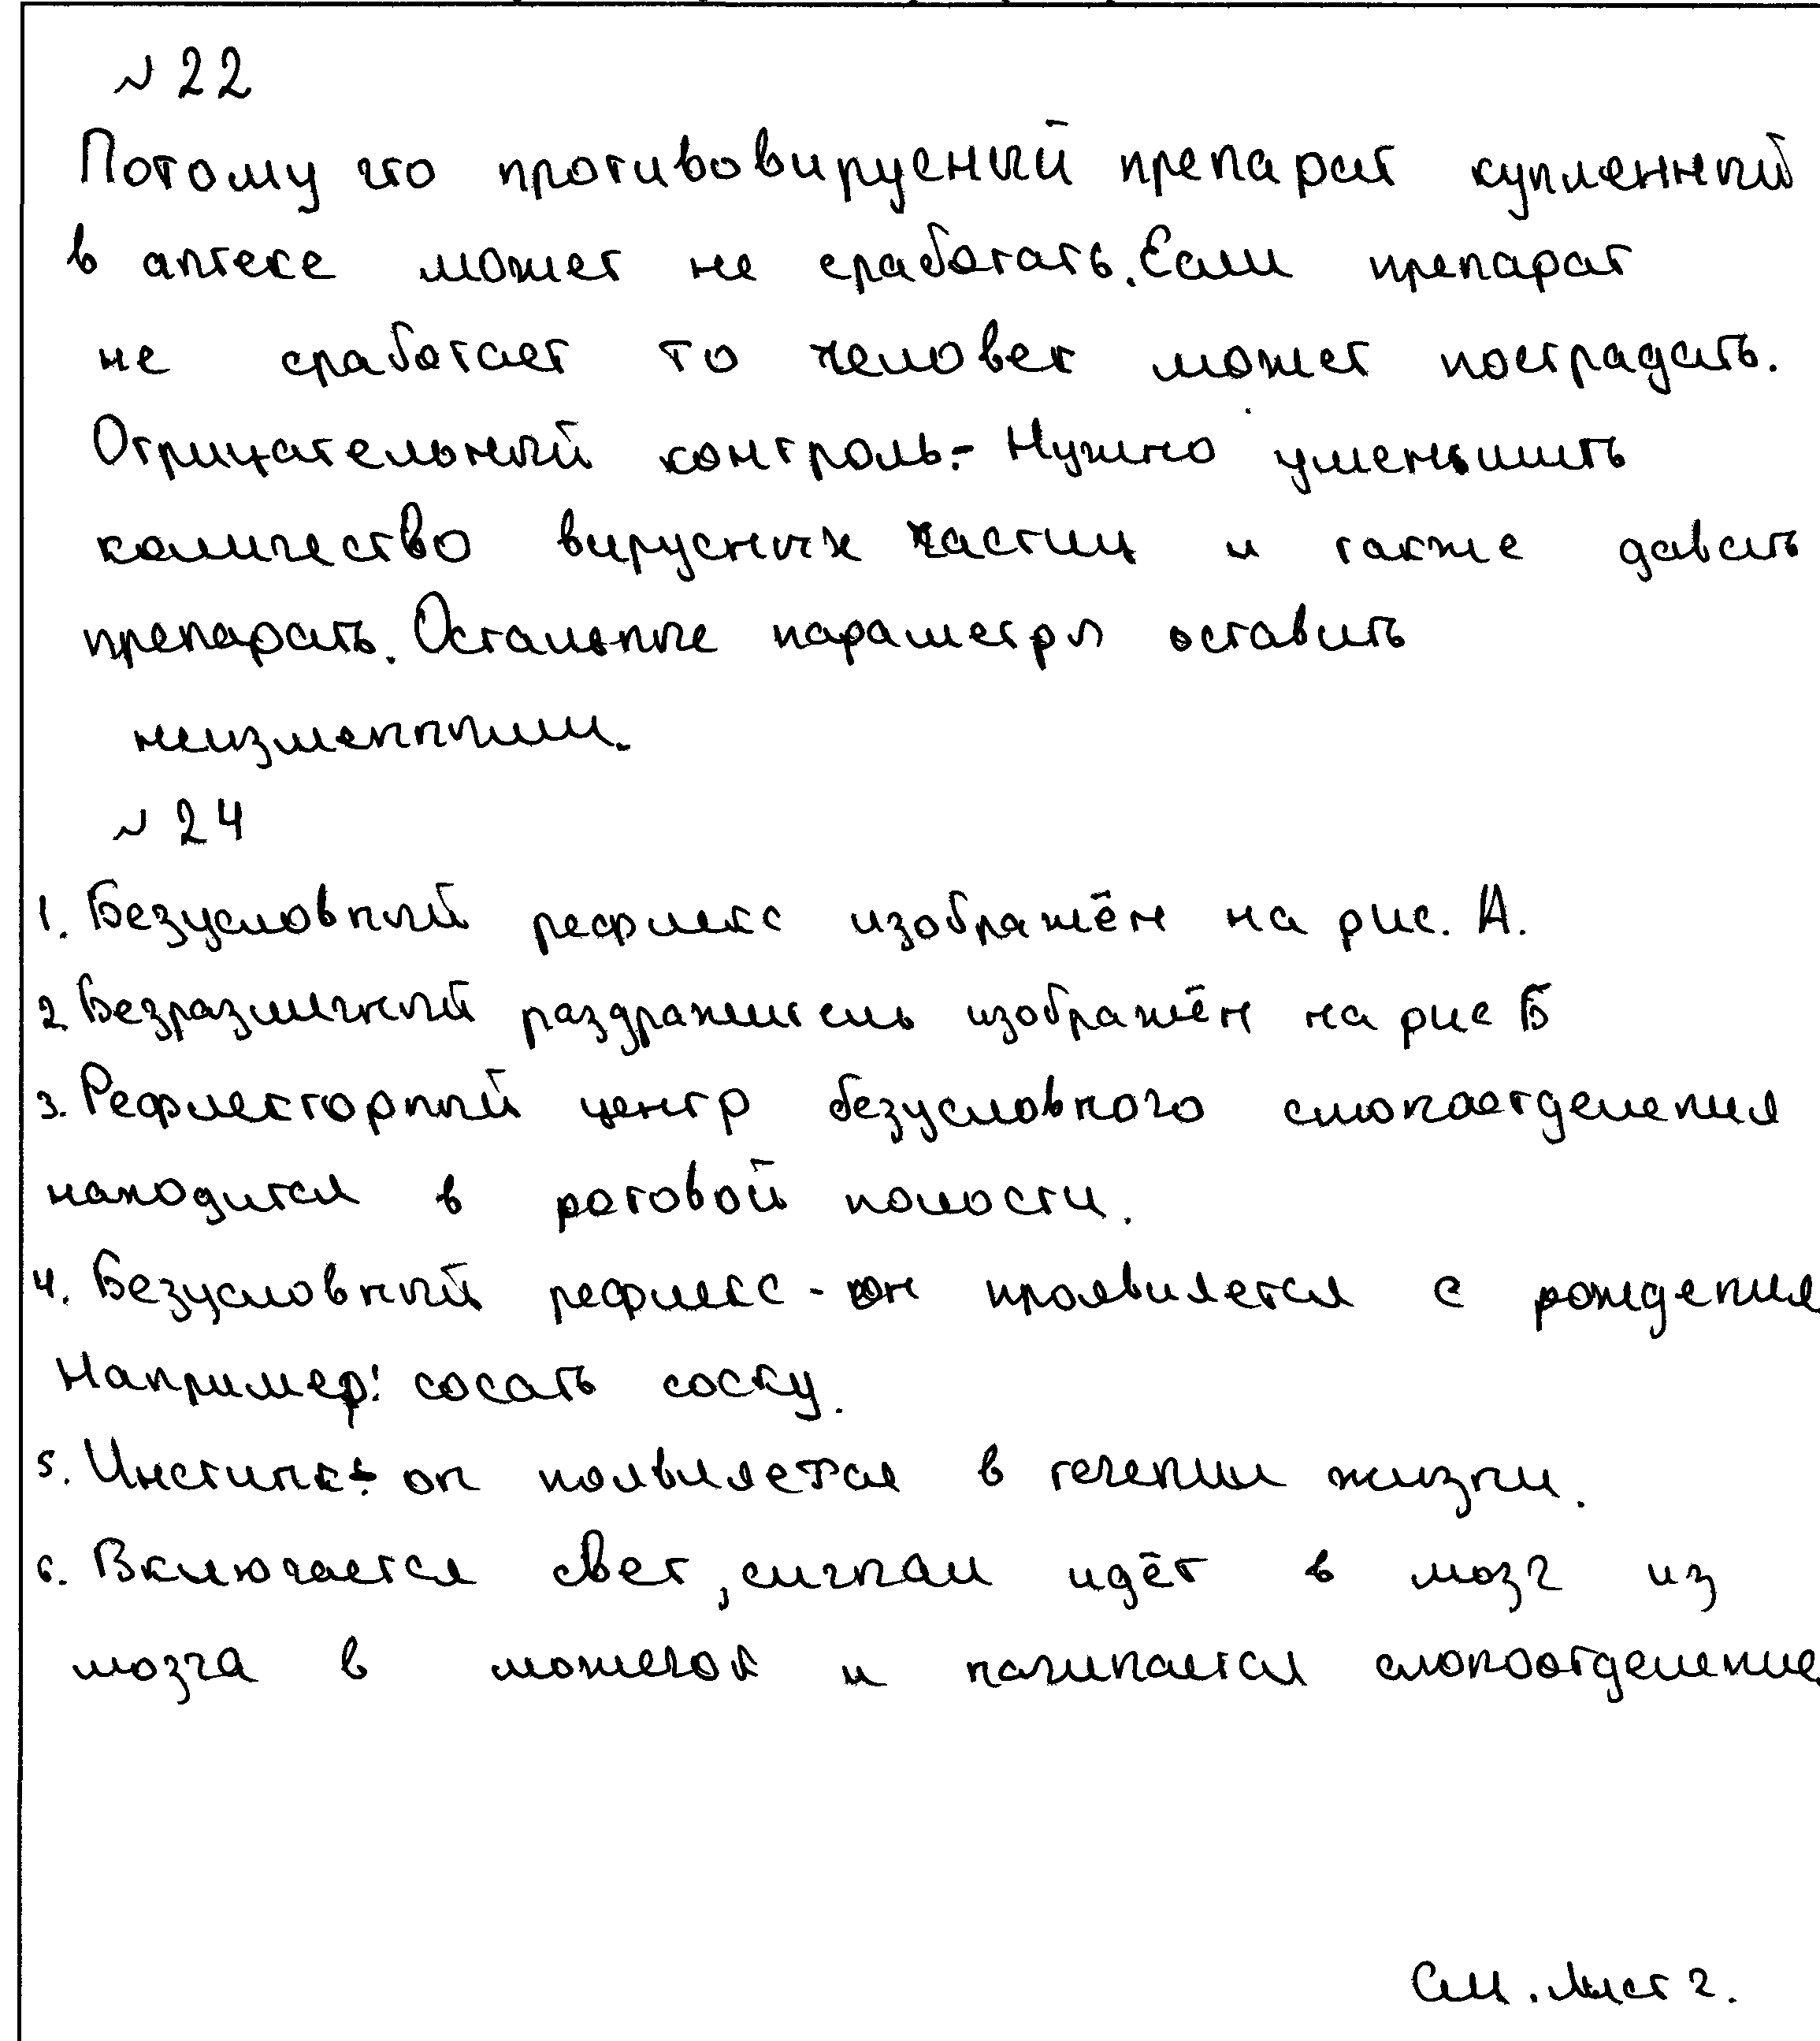 № 22
Потому что противовирусный препарат купленный
в аптеке может не сработать. Если препарат
не сработает то человек может пострадать.
Отрицательный контроль - Нужно уменьшить
количество вирусных частиц и также давать
препарать. Остальные параметры оставить
неизменными.
№ 24
1. Безусловный рефлекс изображён на рис. А.
2 Безразличный раздражитель изображён на рис Б
3. Рефлекторный центр безусловного слюноотделения
находится в ротовой полости.
4. Безусловный рефлекс - он проявляется с рождения
Например: сосать соску.
5. Инстинкт - он появляется в течении жизни.
6. Включается свет, сигнал идёт в мозг из
мозга в мозжечок и начинается слюноотделение
См. Лист 2.